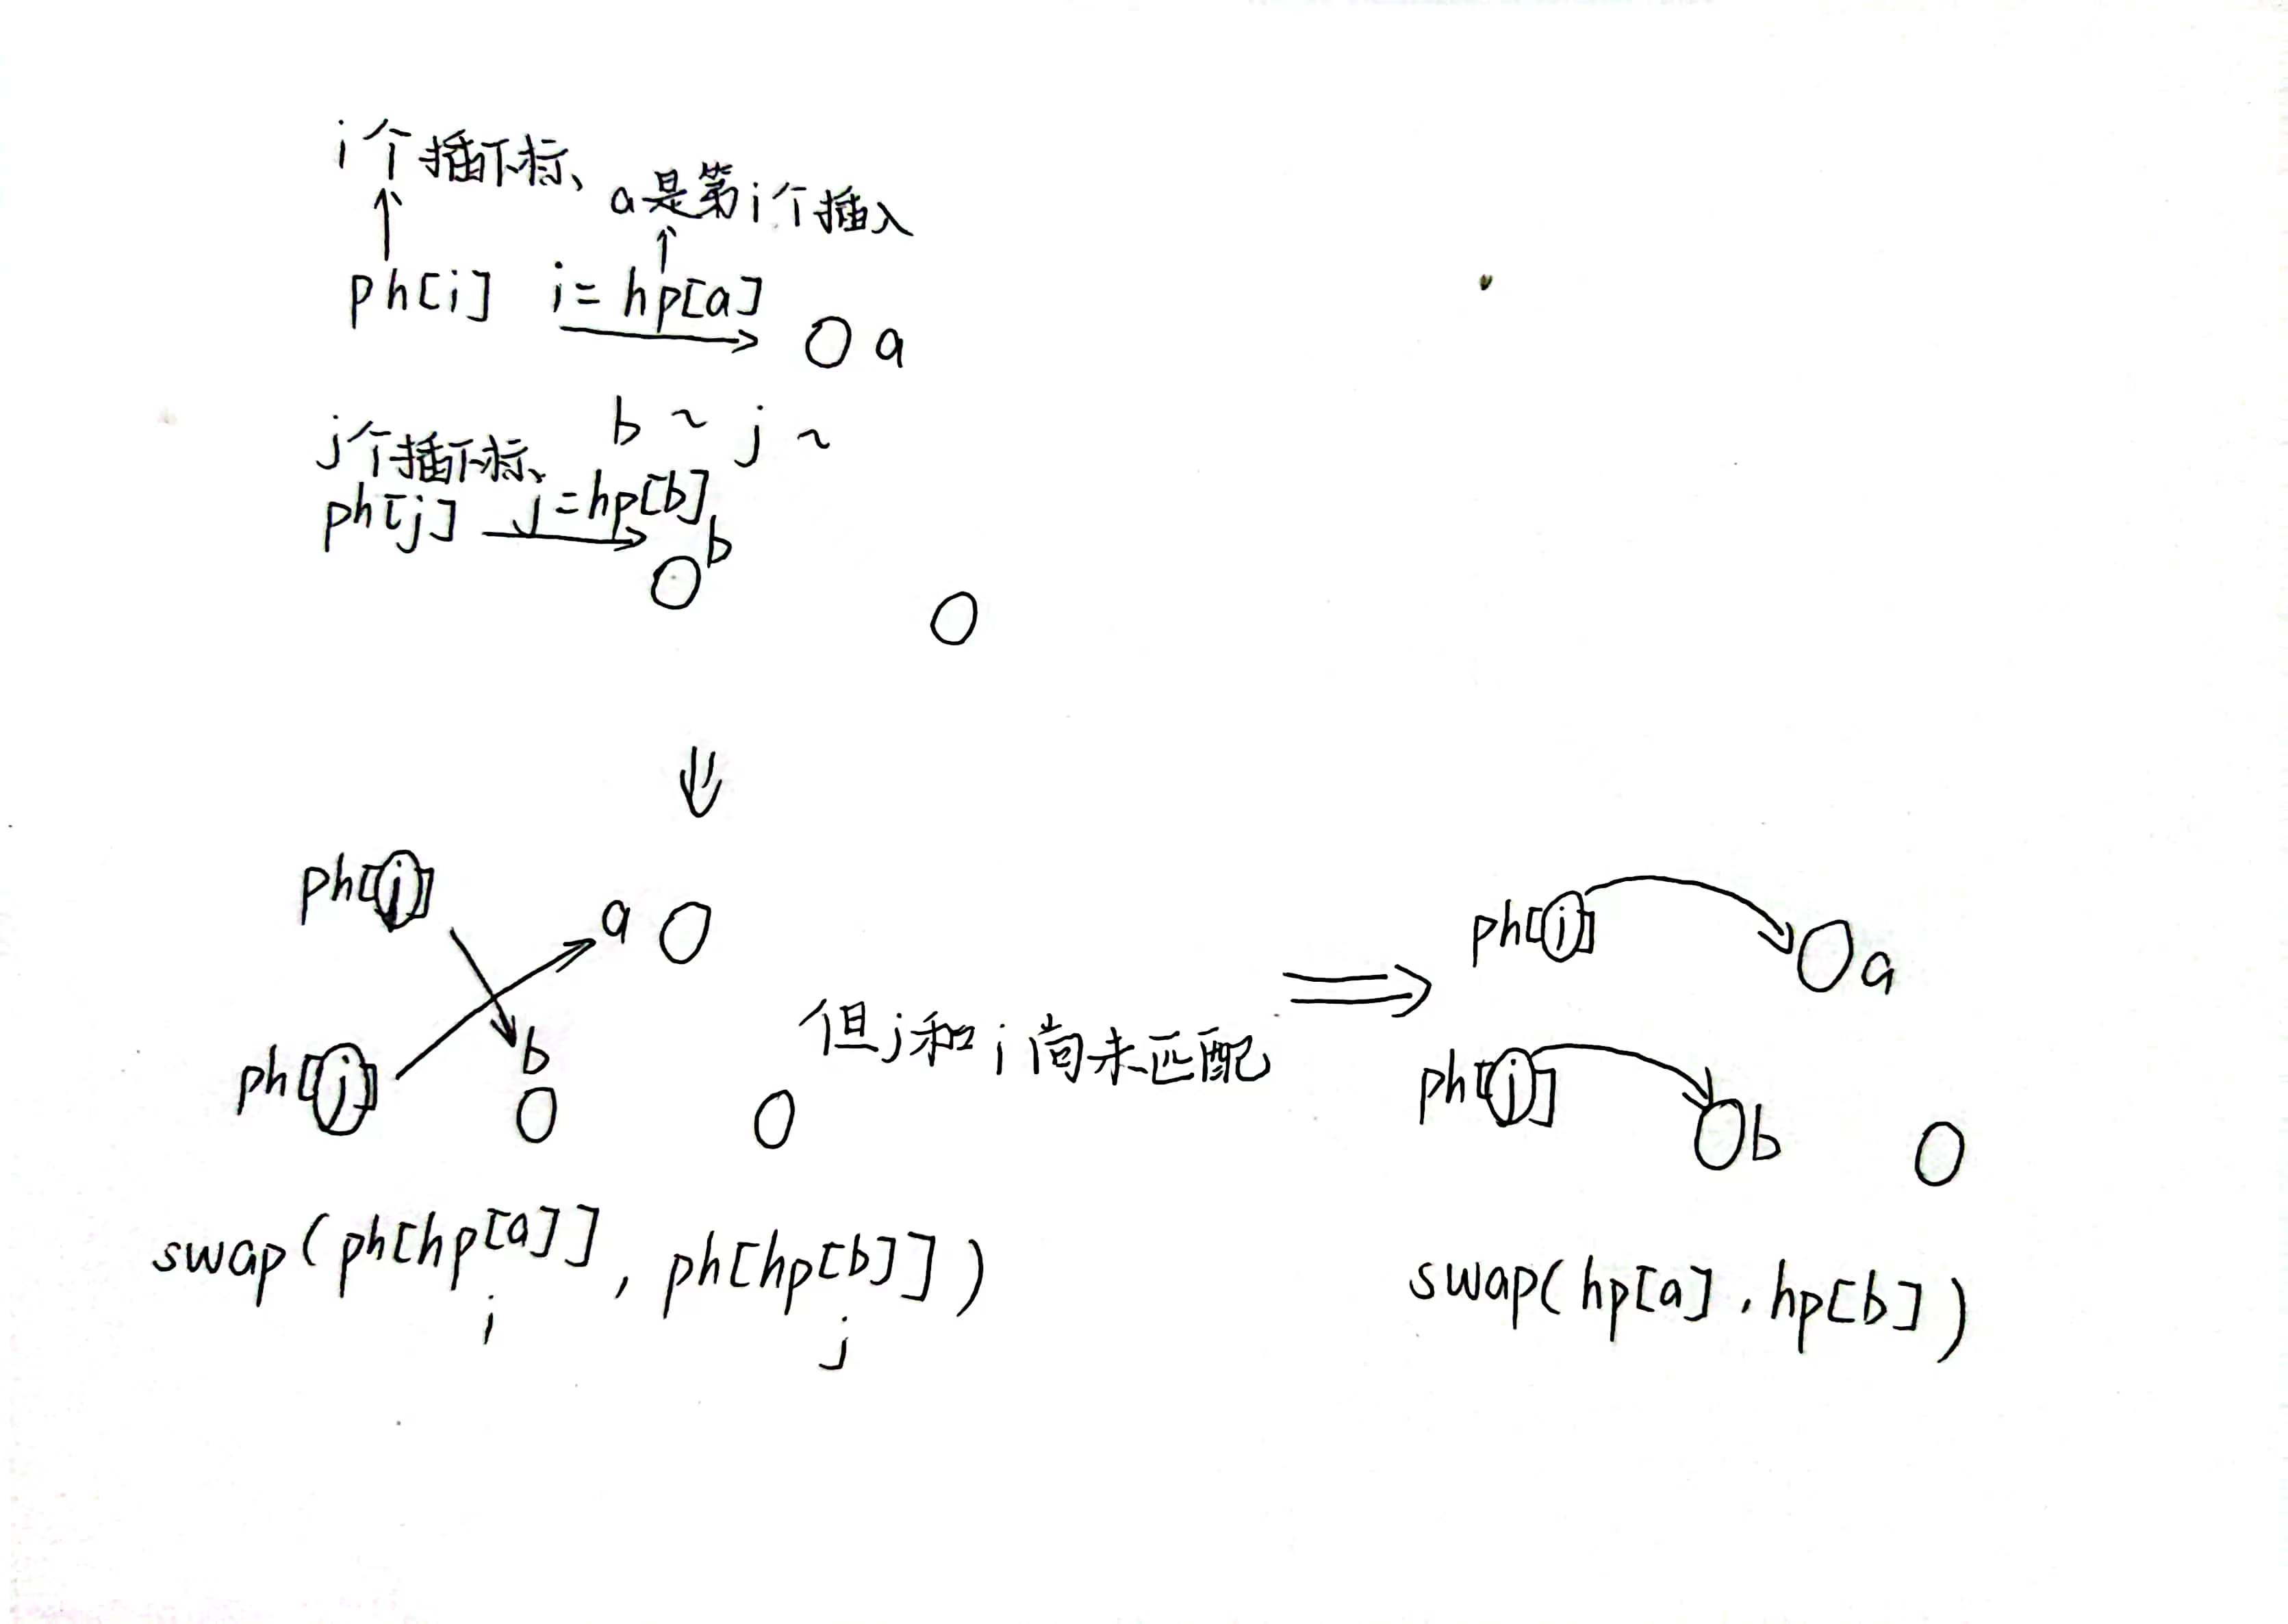 i个插下标、
a是第i个插入
ph[i] i=hp[a]
a
b ~ j ~
j个插下标、
ph[j] j=hp[b]
b
ph[i]
a
ph[j]
b
但j和i尚未匹配
ph[i]
a
ph[j]
b
swap(ph[hp[a]], ph[hp[b]])
i
j
swap(hp[a], hp[b])